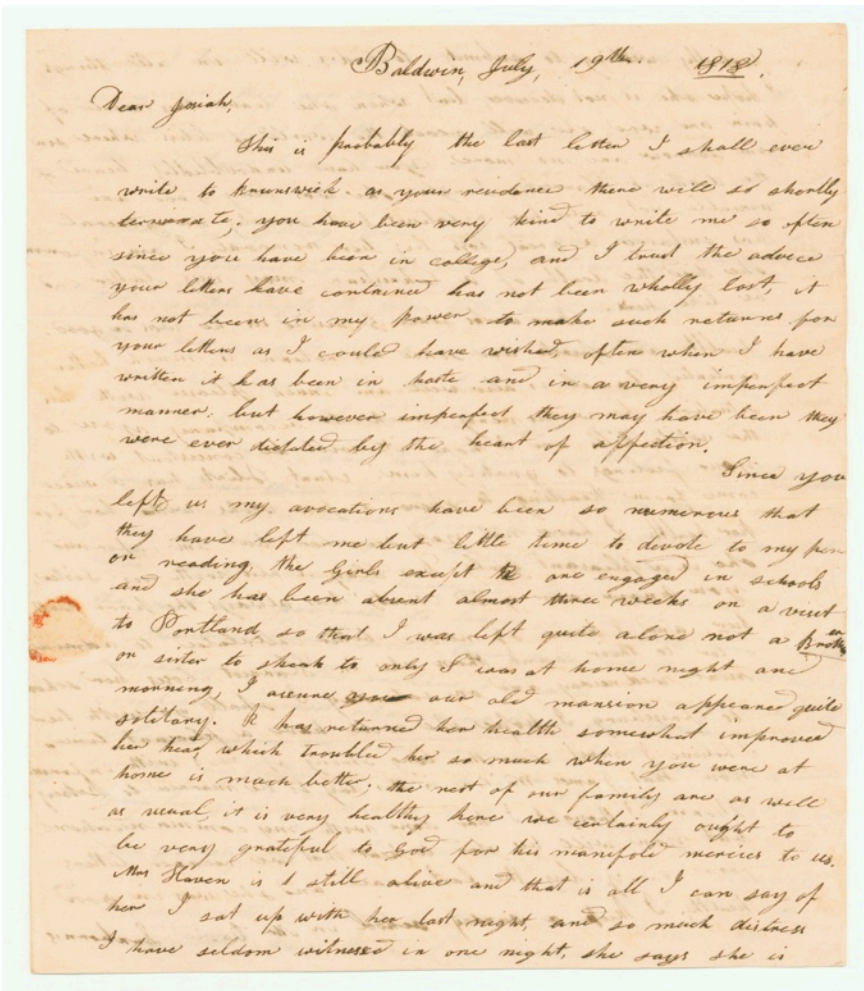 Baldwin, July, 19th. 1818.
Dear Josiah,
This is probably the last letter I shall ever
write to brunswick as your residence there will so shortly
terminate, you have been very kind to write me so often
since you have been in college, and I trust the advice
your letters have contained has not been wholly lost, it
has not been in my power to make such returns for
your letters as I could have wished, often when I have
written it has been in haste and in a very imperfect
manner: but however imperfect they may have been they
were ever dictated by the heart of affection.
Since you
left us my avocations have been so numerous that
they have left me but little time to devote to my pen
or reading, the Girls except R are engaged in schools
and she has been absent almost three weeks on a visit
to Portland, so that I was left quite alone not a Brother
or sister to speak to only S was at home night and
morning, I assure you our old mansion appeared quite
solitary. R has returned her health somewhat improved
her head, which troubled her so much when you were at
home is much better. the rest of our family are as well
as usual, it is very healthy here we certainly ought to
be very grateful to God for his manifold mercies to us.
Mrs Haven is still alive and that is all I can say of
her I sat up with her last night, and so much distress
I have seldom witnessed in one night, she says she is